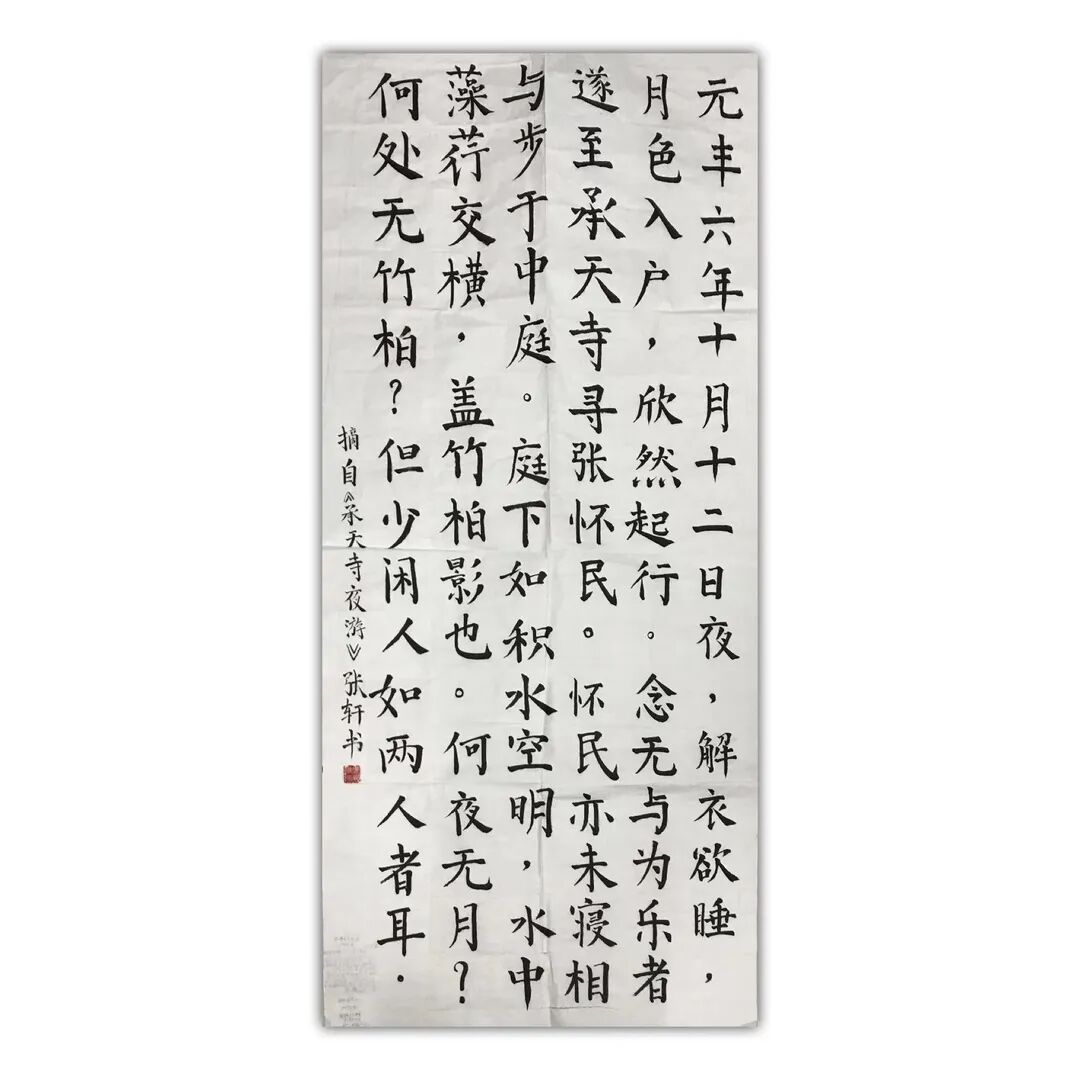 元丰六年十月十二日夜，解衣欲睡，
月色入户，欣然起行。念无与为乐者
遂至承天寺寻张怀民。怀民亦未寝相
与步于中庭。庭下如积水空明，水中
藻荇交横，盖竹柏影也。何夜无月？
何处无竹柏？但少闲人如两人者耳．
摘自《承天寺夜游》张轩书